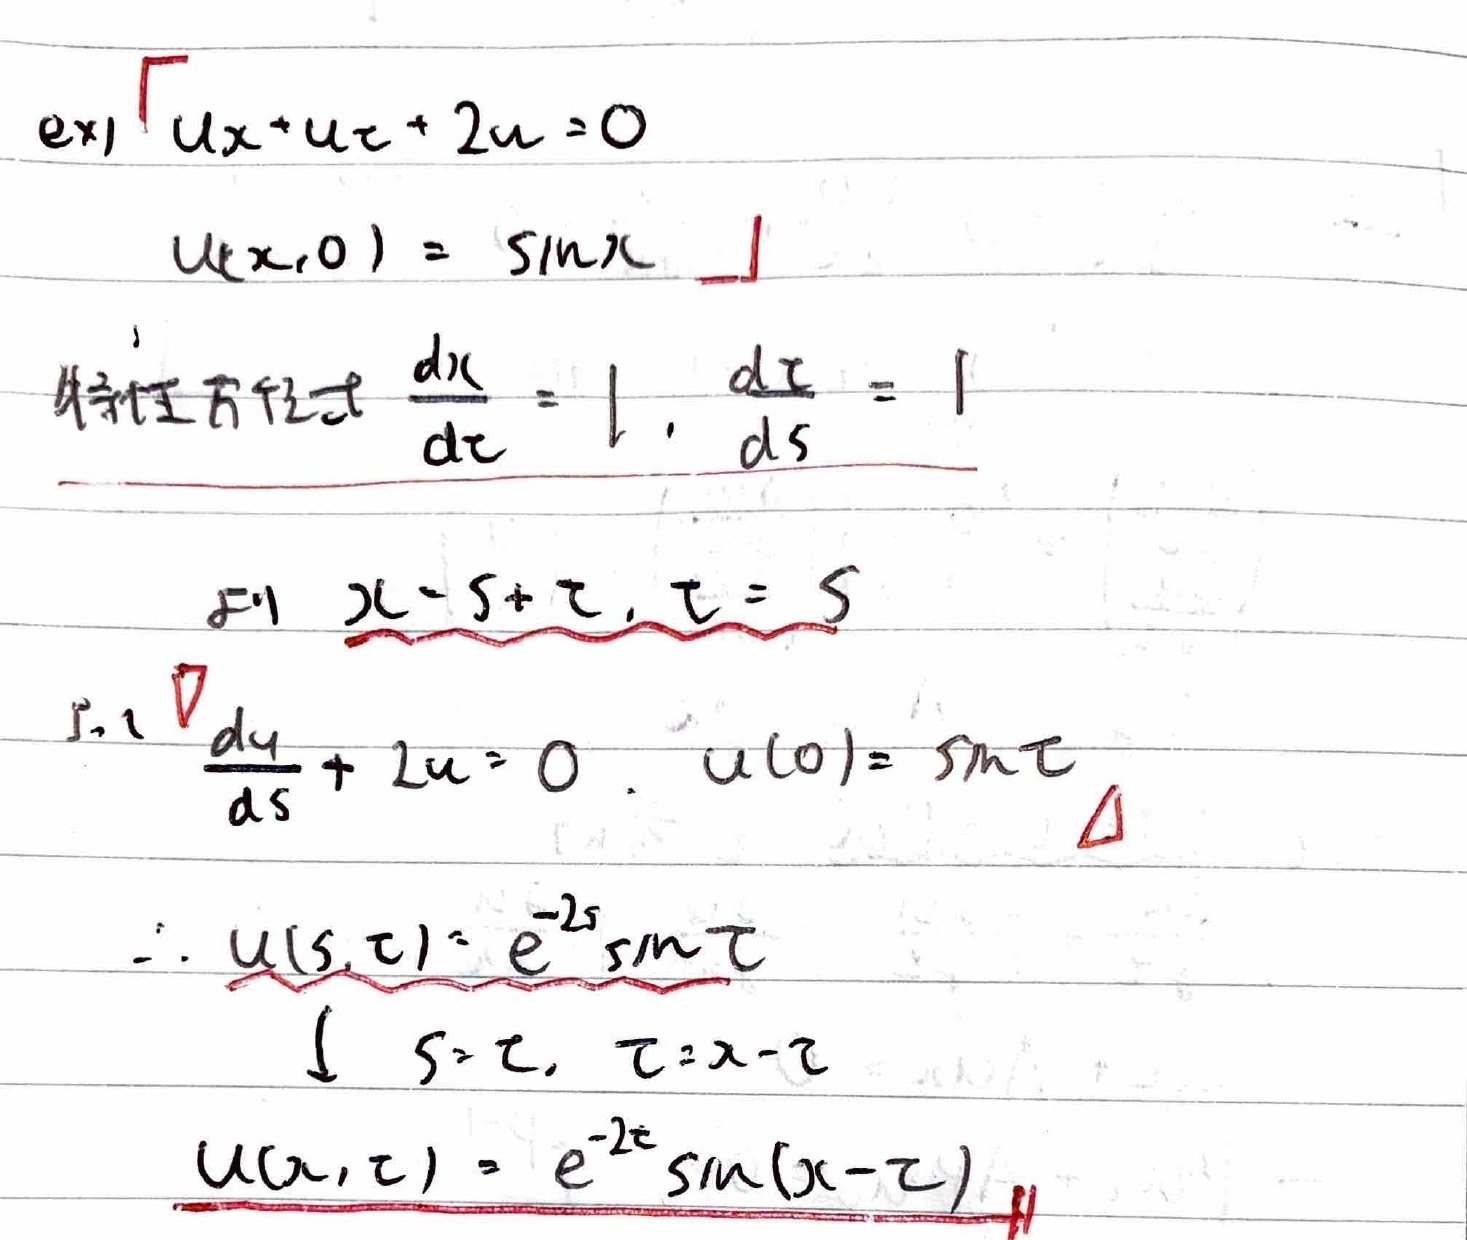 ex1「ux+uτ+2u=0
u(x,0)=sinx」
特性方程式 dx/dτ = 1, dτ/ds = 1
より x-s+τ, τ=s
よって du/ds + 2u=0. u(0)=sinτ
∴ u(s,τ)=e^{-2s} sinτ
↓ s=τ, τ=x-τ
u(x,τ) = e^{-2τ} sin(x-τ)